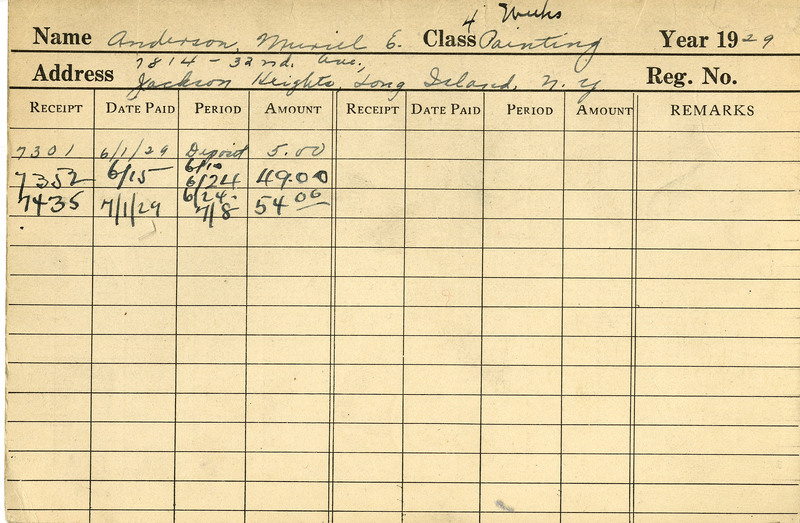 4 Weeks
Name Anderson, Muriel E. Class Painting Year 1929
7814 - 32nd. Ave.,
Address Jackson Heights, Long Island, N.Y Reg. No.
RECEIPT DATE PAID PERIOD AMOUNT RECEIPT DATE PAID PERIOD AMOUNT REMARKS
7301 6/1/29 Deposit 5.00
6/10
7352 6/15 6/24 49.00
6/24-
7435 7/1/29 7/8 54 00